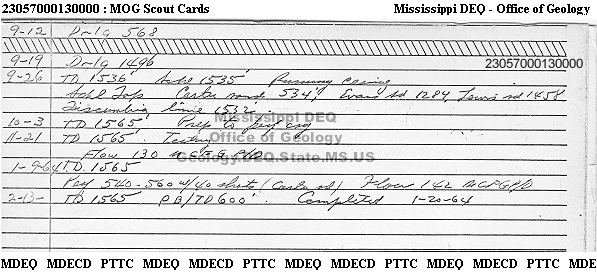 23057000130000 : MOG Scout Cards Mississippi DEQ - Office of Geology
9-12 Drlg 568
9-19 Drlg 1496
23057000130000
9-26 TD 1536' 1535' Running
Carter sand 534', Evans sd 1284, Lewis sd 1458
lime 1532'
Mississippi DEQ
10-3 TD 1565' Prep to
Office of Geology
11-21 TD 1565' Testing
Flow 130 MCFGPD
Geology.DEQ.State.MS.US
1-9-64 TD 1565
Perf 540-560 w/40 shots (Carter sd) Flow 142 MCFGPD
2-13- TD 1565 PB/TD 600' Completed 1-20-64
MDEQ MDECD PTTC MDEQ MDECD PTTC MDEQ MDECD PTTC MDEQ MDECD PTTC MDEQ